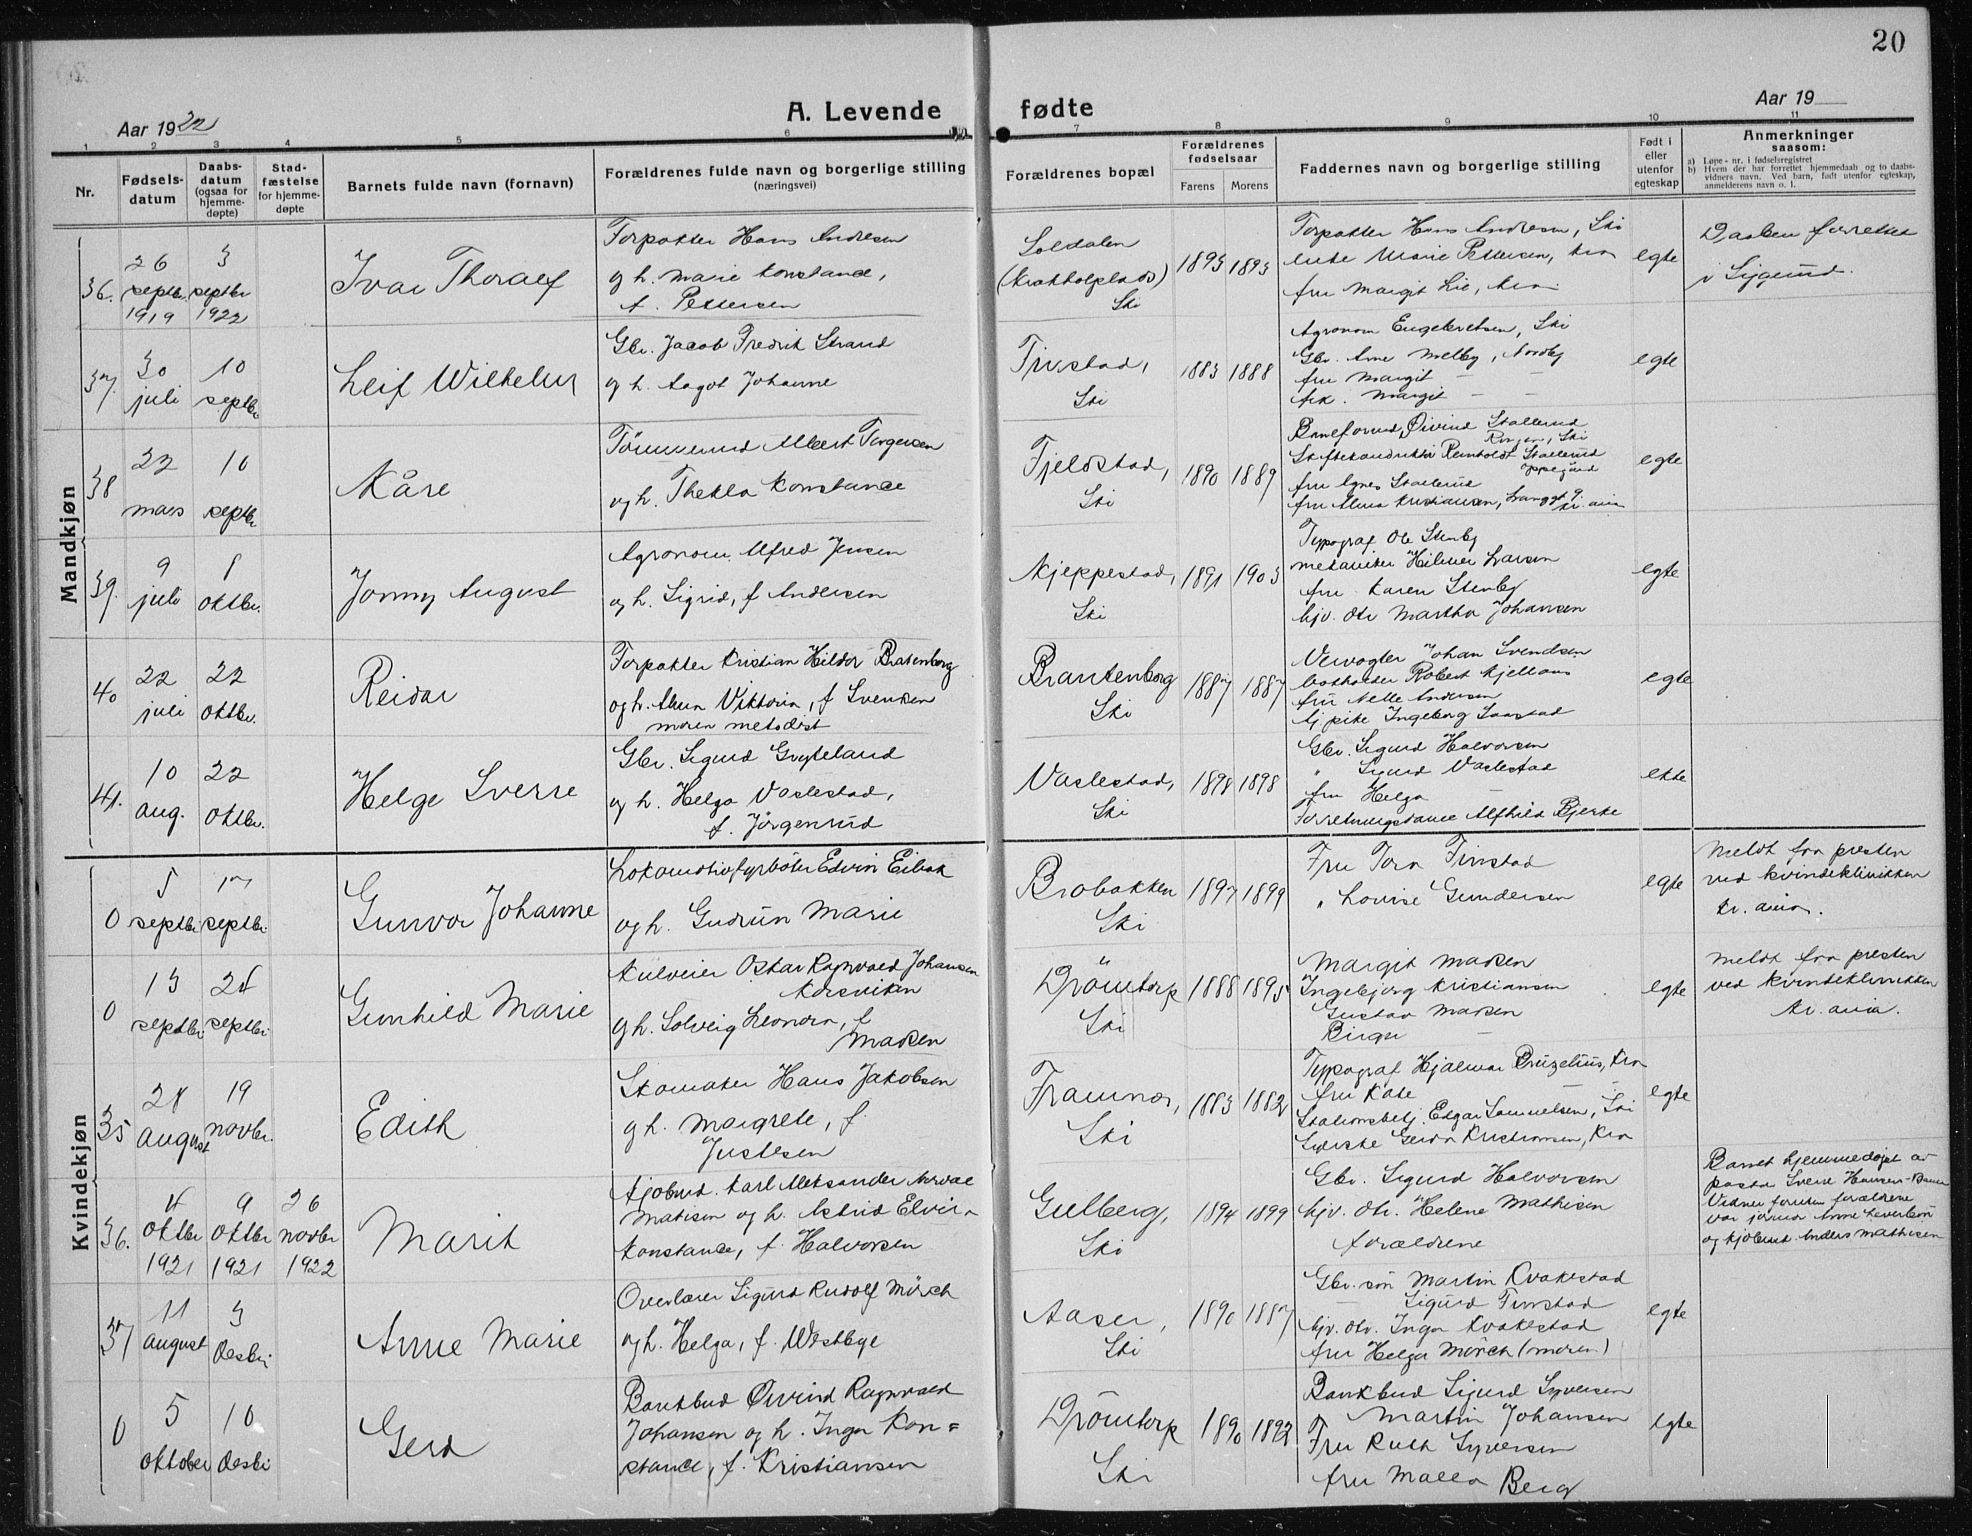 20
Aar 1922
A. Levende fødte
Aar 19
1 2 3 4 5 6 7 8 9 10 11
Nr.
Fødsels-
datum
Daabs-
datum
(ogsaa for
hjemme-
døpte)
Stad-
fæstelse
for hjemme-
døpte
Barnets fulde navn (fornavn)
Forældrenes fulde navn og borgerlige stilling
(næringsvei)
Forældrenes bopæl
Forældrenes
fødselsaar
Farens Morens
Faddernes navn og borgerlige stilling
Født i
eller
utenfor
egteskap
Anmerkninger
saasom:
a) Løpe-nr. i fødselsregistret
b) Hvem der har forrettet hjemmedaab og to daabs-
vidners navn. Ved barn, født utenfor egteskap,
anmelderens navn o. l.
Mandkjøn
36.
26
septbr.
1919
3
septbr
1922
Ivar Thoralf
Forpakter Hans Andresen
og h. Marie Konstance,
f. Pettersen
Soldalen
Ski
1893 1893
Forpakter Hans Andresen, Ski
enke Marie Pettersen, Kra
fru Margit Lie, Kra
egte
Daaben forrettet
i Siggerud.
37.
30
juli
10
septbr
Leif Wilhelm
Gbr. Jacob Fredrik Strand
og h. Aagot Johanne
Finstad,
Ski
1883 1888
Agronom Engebretsen, Ski
Gbr. Arne Melby, Nordby
fru Margit —
frk. Margit — —
egte
38
22
mars
10
septbr
Kåre
Albert Torgersen
og h. Thekla Konstance
Fjeldstad,
Ski
1890 1889
Øivind Stallerud
Ski
Reinholdt Stallerud
Oppegård
fru Agnes Stallerud
fru Alma Kristiansen,
Kr.ania
egte
39.
9
juli
8
oktbr.
Jonny August
Agronom Alfred Jensen
og h. Sigrid, f Andersen
Kjeppestad,
Ski
1891 1903
Typograf Ole Stenby
mekaniker Hilmer Larsen
fru Karen Stenby
hjv. dtr Martha Johansen
egte
40
22
juli
22
oktbr.
Reidar
Forpakter Kristian Hildor Bratenborg
og h. Alma Viktoria, f Svendsen
moren metodist
Brautenborg
Ski
1887 1887
Veivogter Johan Svendsen
Robert Kjellaas
fru Nelle Andersen
tj.pike Ingeborg Saastad
egte
41.
10
aug.
22
oktbr.
Helge Sverre
Gbr. Sigurd Gryteland
og h. Helga Vaslestad,
f. Jörgensrud
Vaslestad,
Ski
1898 1898
Gbr. Sigurd Halvorsen
" Sigurd Vaslestad
fru Helga —
Forretningsdame Alfhild Bjerke
ekte
Kvindekjøn
0
5
septbr.
17
septbr.
Gunvor Johanne
Lokomotivfyrböter Edvin Eibak
og h. Gudrun Marie
Brobakken
Ski
1897 1899
Fru Tora Finstad
" Lovise Gundersen
egte
Meldt fra presten
ved kvindeklinikken
Kr.ania.
0
13
septbr
24
septbr
Gunhild Marie
Oskar Ragnvald Johansen
Korsviken
og h. Solveig Leonora, f
Madsen
Drömtorp
Ski
1888 1895
Margit Madsen
Ingebjörg Kristiansen
Gustav Madsen
Birger —
egte
Meldt fra presten
ved kvindeklinikken
Kr.ania.
35
28
august
19
novbr.
Edith
Skomaker Hans Jakobsen
og h. Margrete, f
Justesen
Framnes,
Ski
1883 1882
Typograf Hjalmar Bruzelius, Kra
fru Kate — —
Stationsbetj. Edgar Samuelsen, Ski
Syerske Gerda Kristiansen, Kra
egte
36.
4
oktbr
1921
9
oktbr
1921
26
novbr
1922
Marit
Kjöbmd. Karl Aleksander
Matisen og h. Astrid Elvira
Konstance, f. Halvorsen
Gulberg,
Ski
1894 1899
Gbr. Sigurd Halvorsen
hjv. dtr. Helene Mathisen
forældrene
Barnet hjemmedöpt av
pastor Sverre Hansen-
Vidner foruten forældrene
var jormor Anne
og kjöbmd. Anders Mathisen
37
11
august
3
desbr
Anne Marie
Overlærer Sigurd Rudolf Mörch
og h. Helga, f. Westbye
Aaser,
Ski
1890 1887
Gbr. sön Martin Kvakestad
— Sigurd Finstad
hjv. dtr. Inga Kvakestad
fru Helga Mörch (moren)
egte
0
5
oktober
10
desbr
Gerd
Bankbud Øivind Ragnvald
Johansen og h. Inga Kon=
stance, f. Kristiansen
Drömtorp
Ski
1890 1892
Bankbud Sigurd Syversen
Martin Johansen
Fru Ruth Syversen
fru Malla Berg
egte